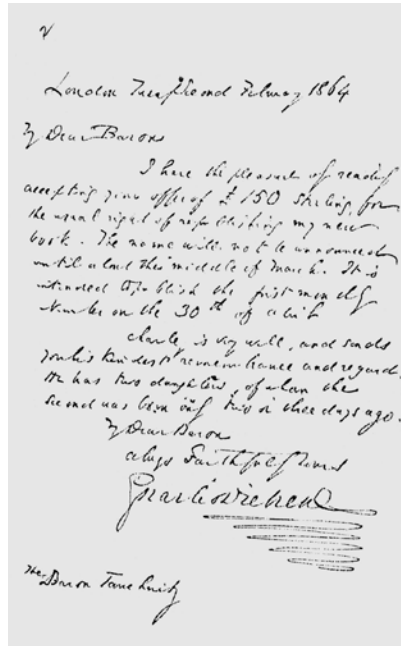 London Twenty Second February 1864
My Dear Baron
I have the pleasure of readily
accepting your offer of £150 Sterling, for
the usual right of republishing my new
book. The name will not be announced
until about the middle of March. It is
intended to publish the first monthly
Number on the 30th of
Charle is very well, and sends
you his kindest remembrance and regard.
He has two daughters, of whom the
Second was born only two or three days ago.
My Dear Baron
always Faithfully Yours
Charles Dickens
The Baron Tauchnitz